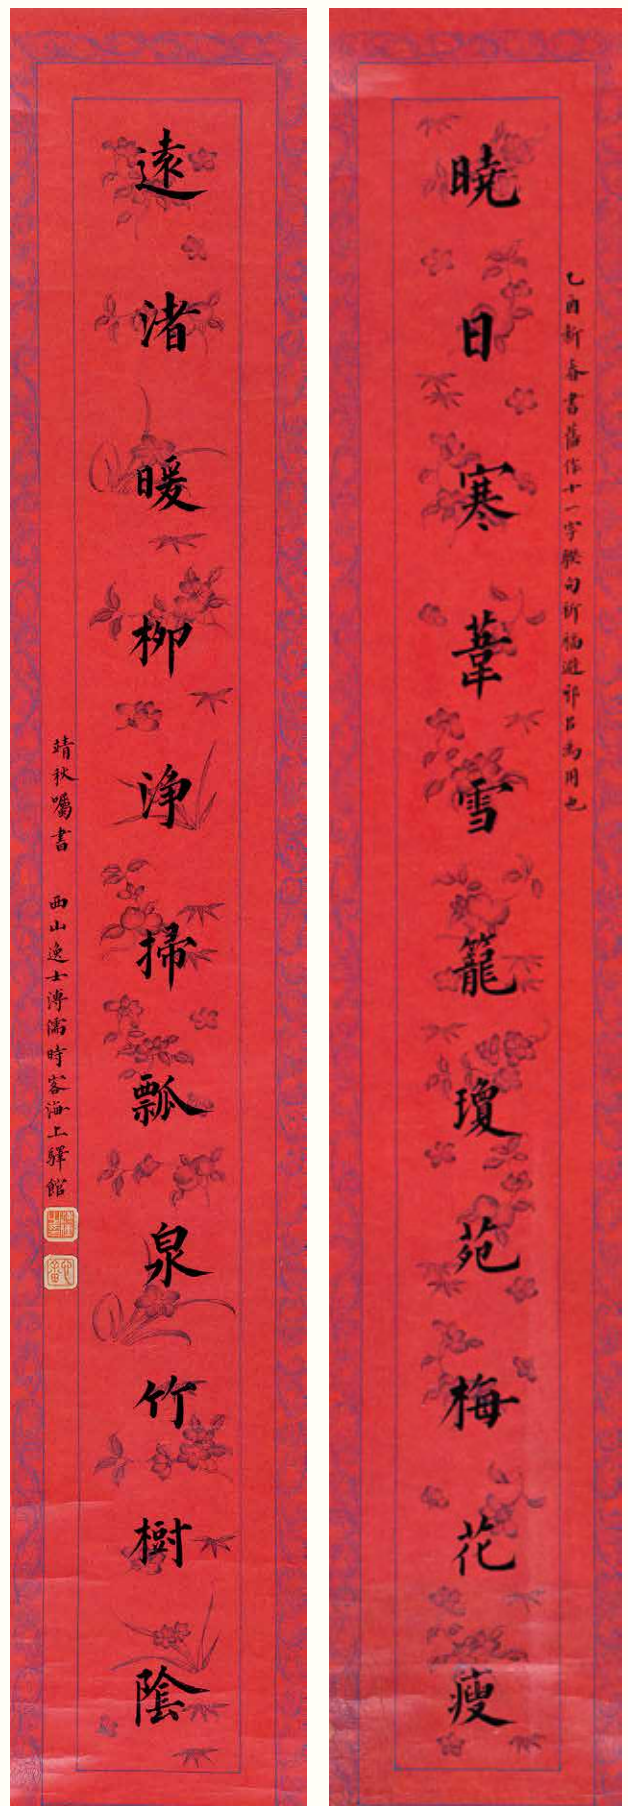 乙酉新春書舊作十一字聯句祈福避邪㠯為用也
曉日寒葦雪籠瓊苑梅花瘦
遠渚暖柳浄掃瓢泉竹樹陰
靖秋囑書 西山逸士溥濡時客海上驛館